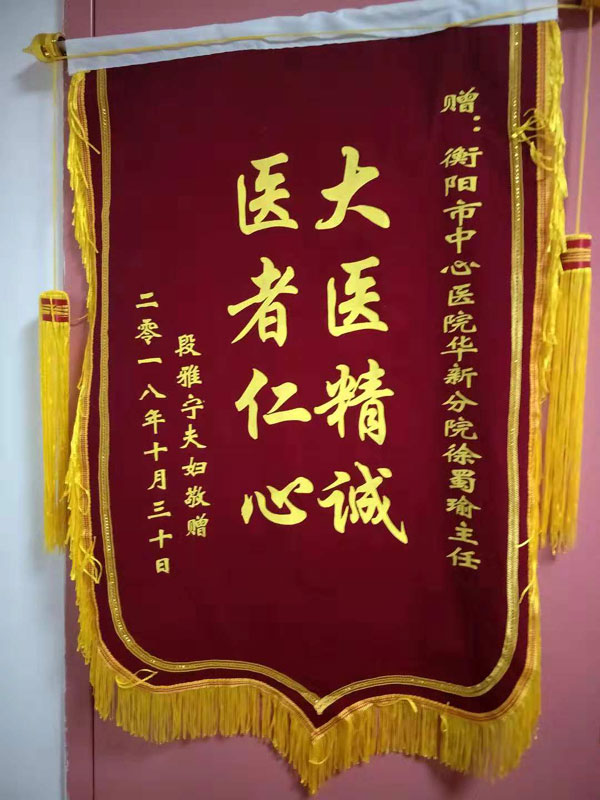 赠：衡阳市中心医院华新分院徐蜀瑜主任
大医精诚
医者仁心
段雅宁夫妇敬赠
二零一八年十月三十日